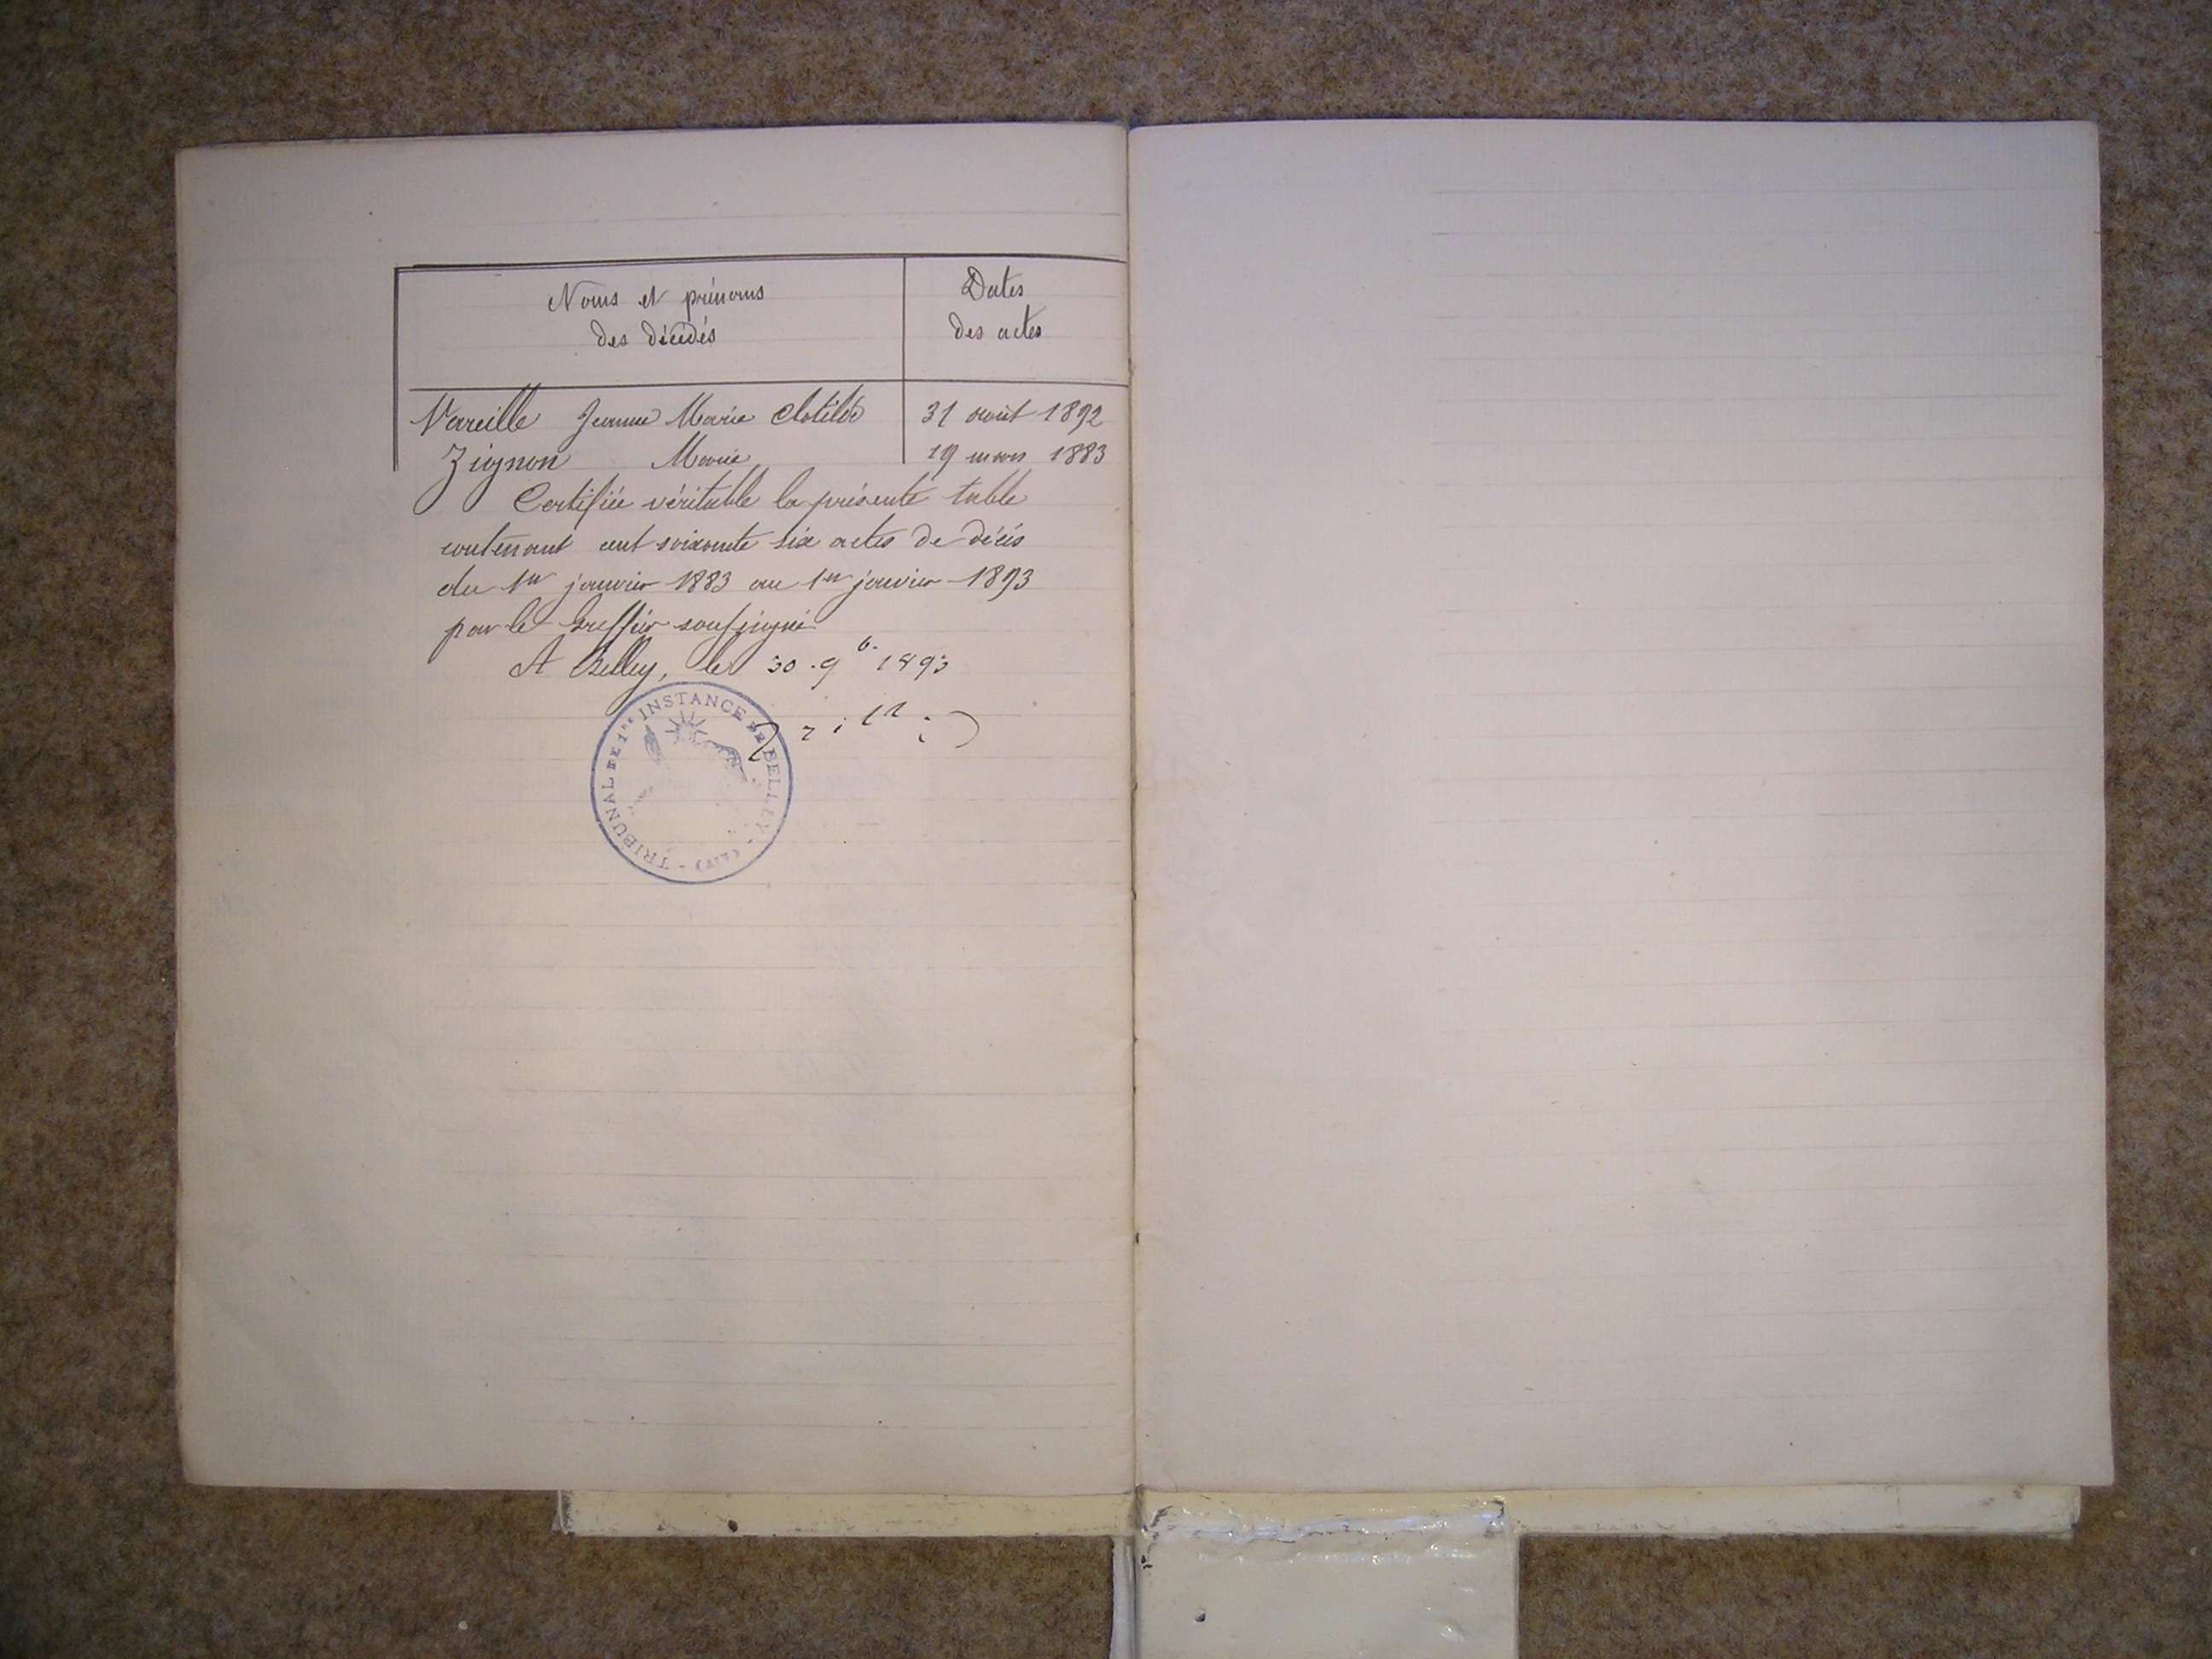 Noms et prénoms
des décédés
Dates
des actes
Vareille Jeanne Marie Clotilde 31 août 1892
Zignon Marie 19 mars 1883
Certifiée véritable la présente table
contenant cent soixante six actes de décès
du 1er janvier 1883 au 1er janvier 1893
par le Greffier soussigné
A Belley, le 30 . 9b. 1893
TRIBUNAL DE 1re INSTANCE DE BELLEY - (AIN) -